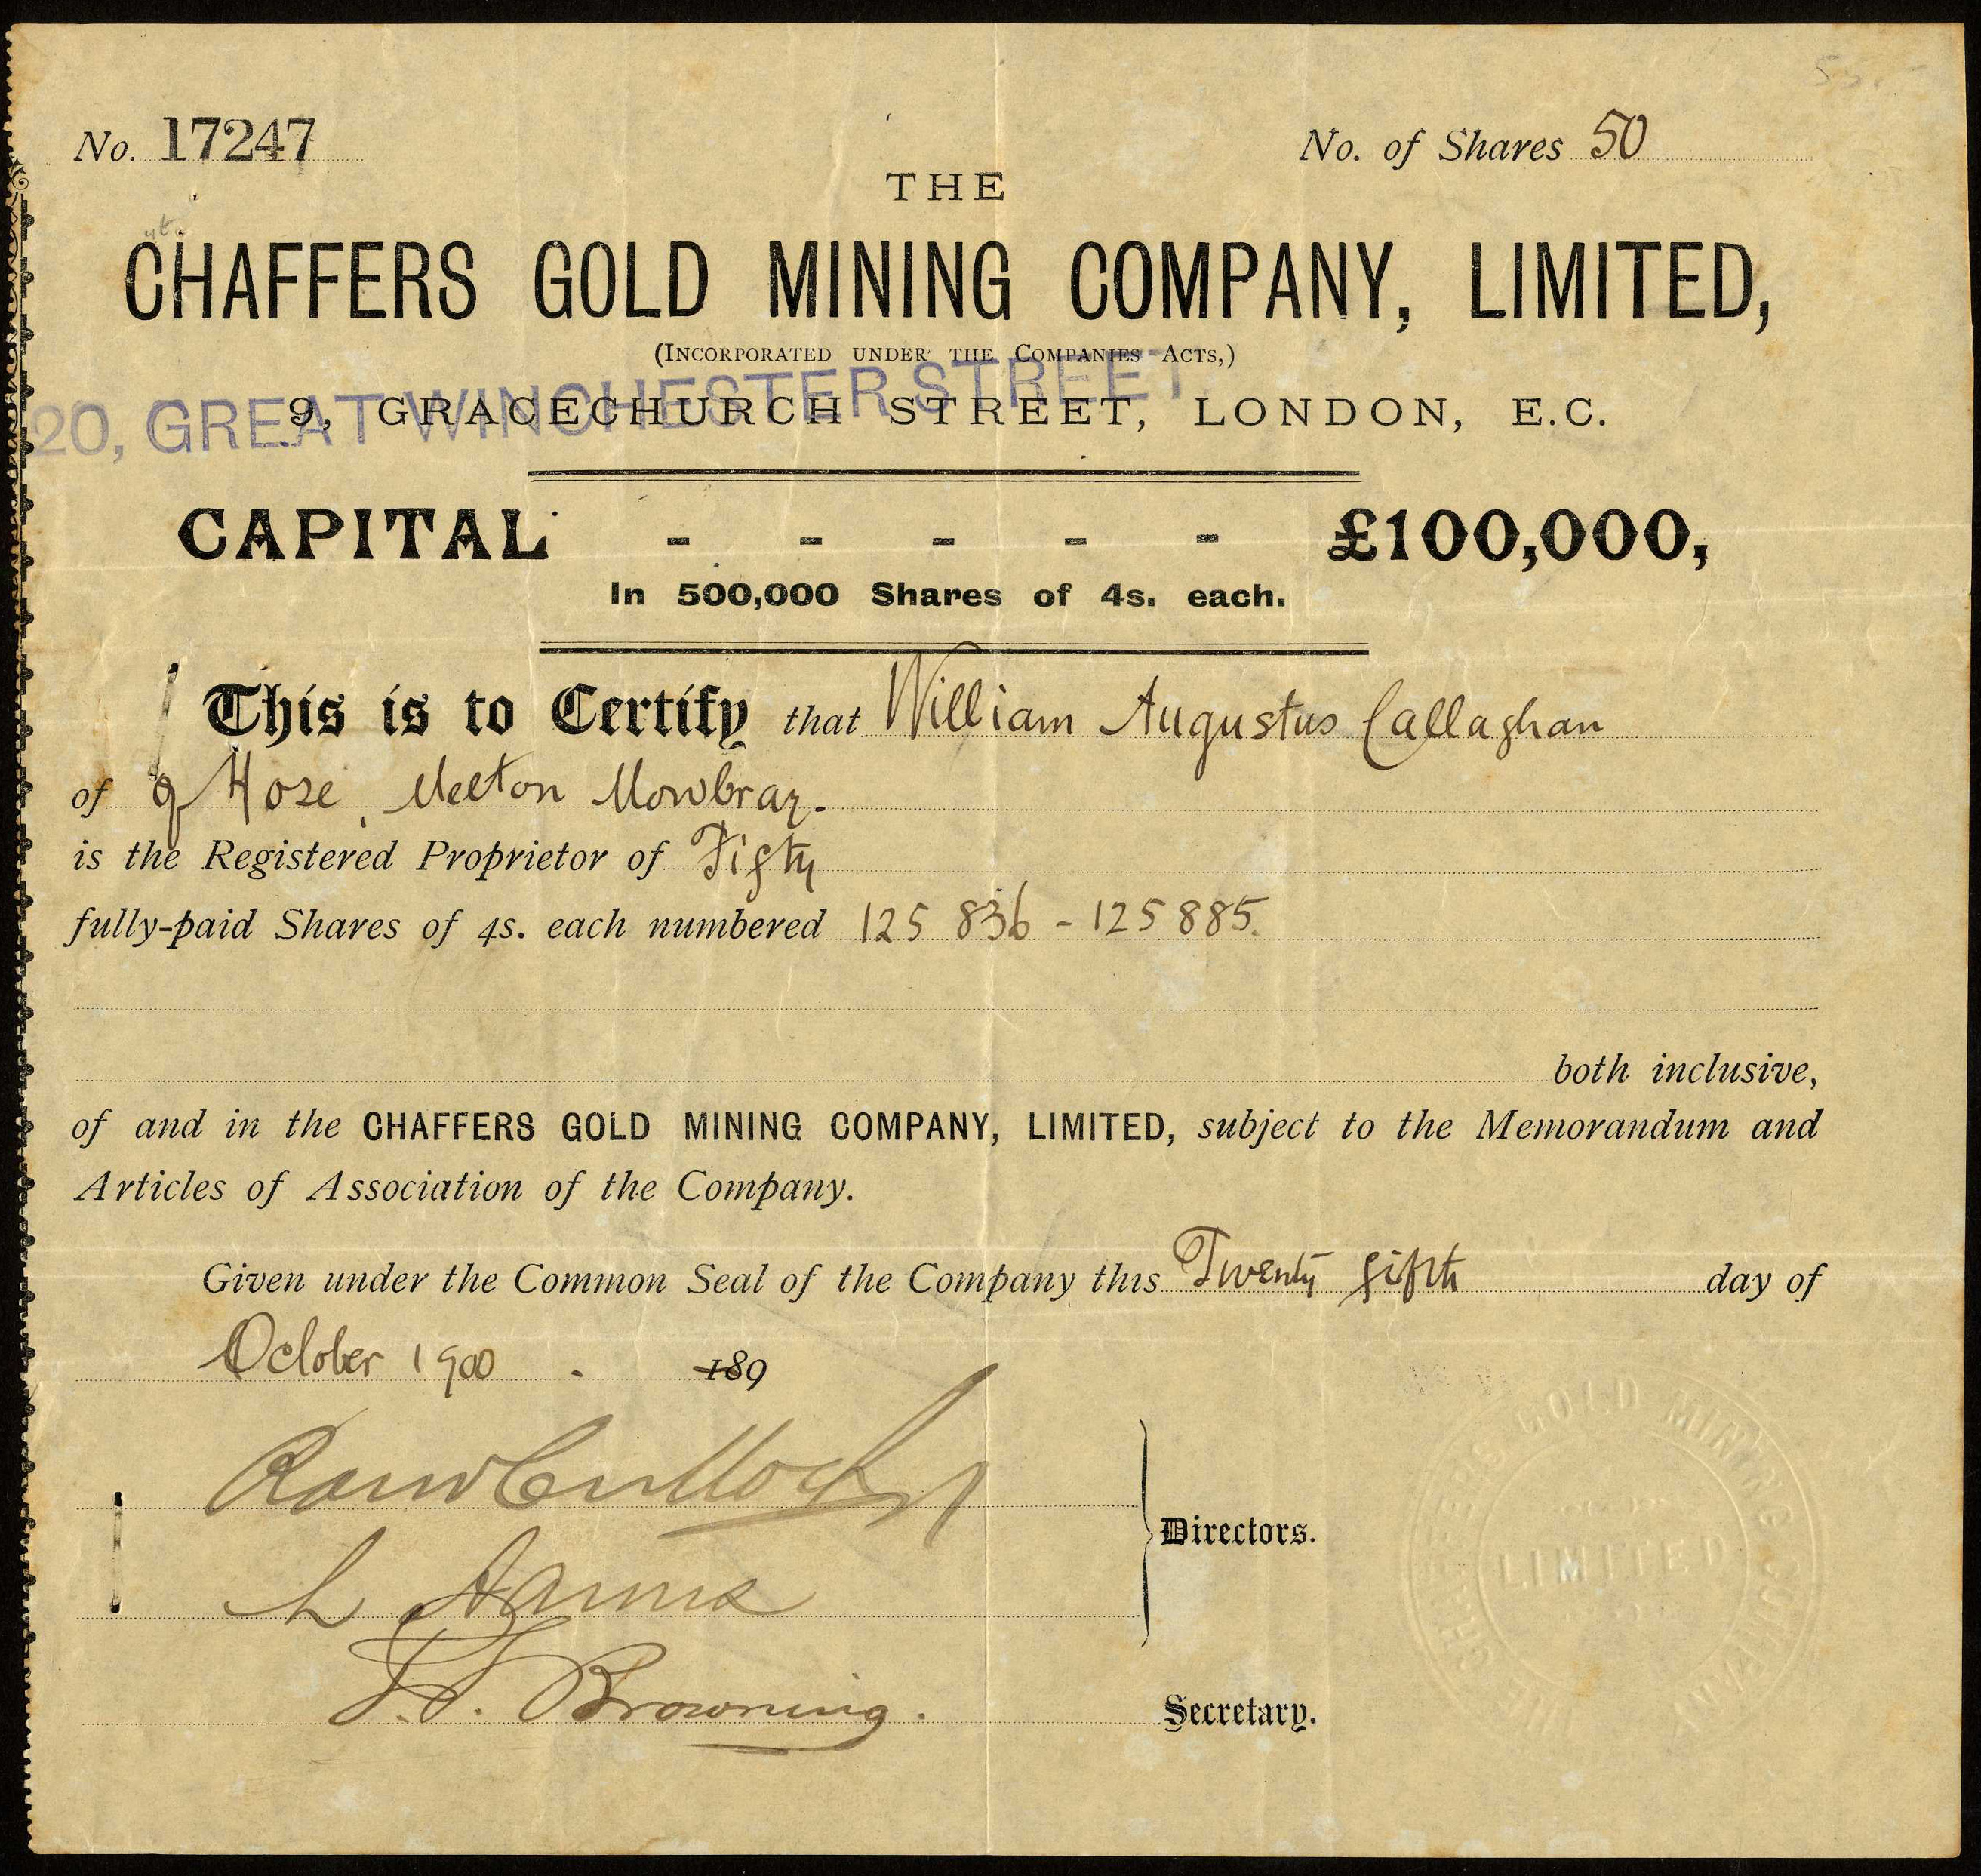 No. 17247
No. of Shares 50
THE
CHAFFERS GOLD MINING COMPANY, LIMITED,
(INCORPORATED UNDER THE COMPANIES ACTS,)
20, GREAT WINCHESTER STREET
9, GRACECHURCH STREET, LONDON, E.C.
CAPITAL - - - - - £100,000,
In 500,000 Shares of 4s. each.
This is to Certify that William Augustus Callaghan
of of Hose, Melton Mowbray.
is the Registered Proprietor of Fifty
fully-paid Shares of 4s. each numbered 125 836 - 125 885.
both inclusive,
of and in the CHAFFERS GOLD MINING COMPANY, LIMITED, subject to the Memorandum and
Articles of Association of the Company.
Given under the Common Seal of the Company this Twenty fifth day of
October 1900 . 189
Directors.
F. F. Browning.
Secretary.
THE CHAFFERS GOLD MINING COMPANY
LIMITED